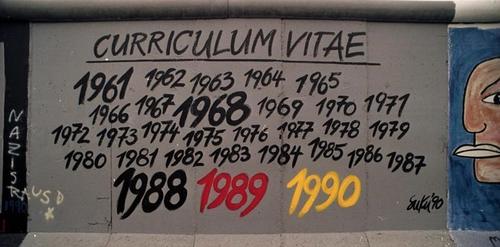 CURRICULUM VITAE
1961 1962 1963 1964 1965
1966 1967 1968 1969 1970 1971
1972 1973 1974 1975 1976 1977 1978 1979
1980 1981 1982 1983 1984 1985 1986 1987
1988 1989 1990
suku '90
NAZIS
USD